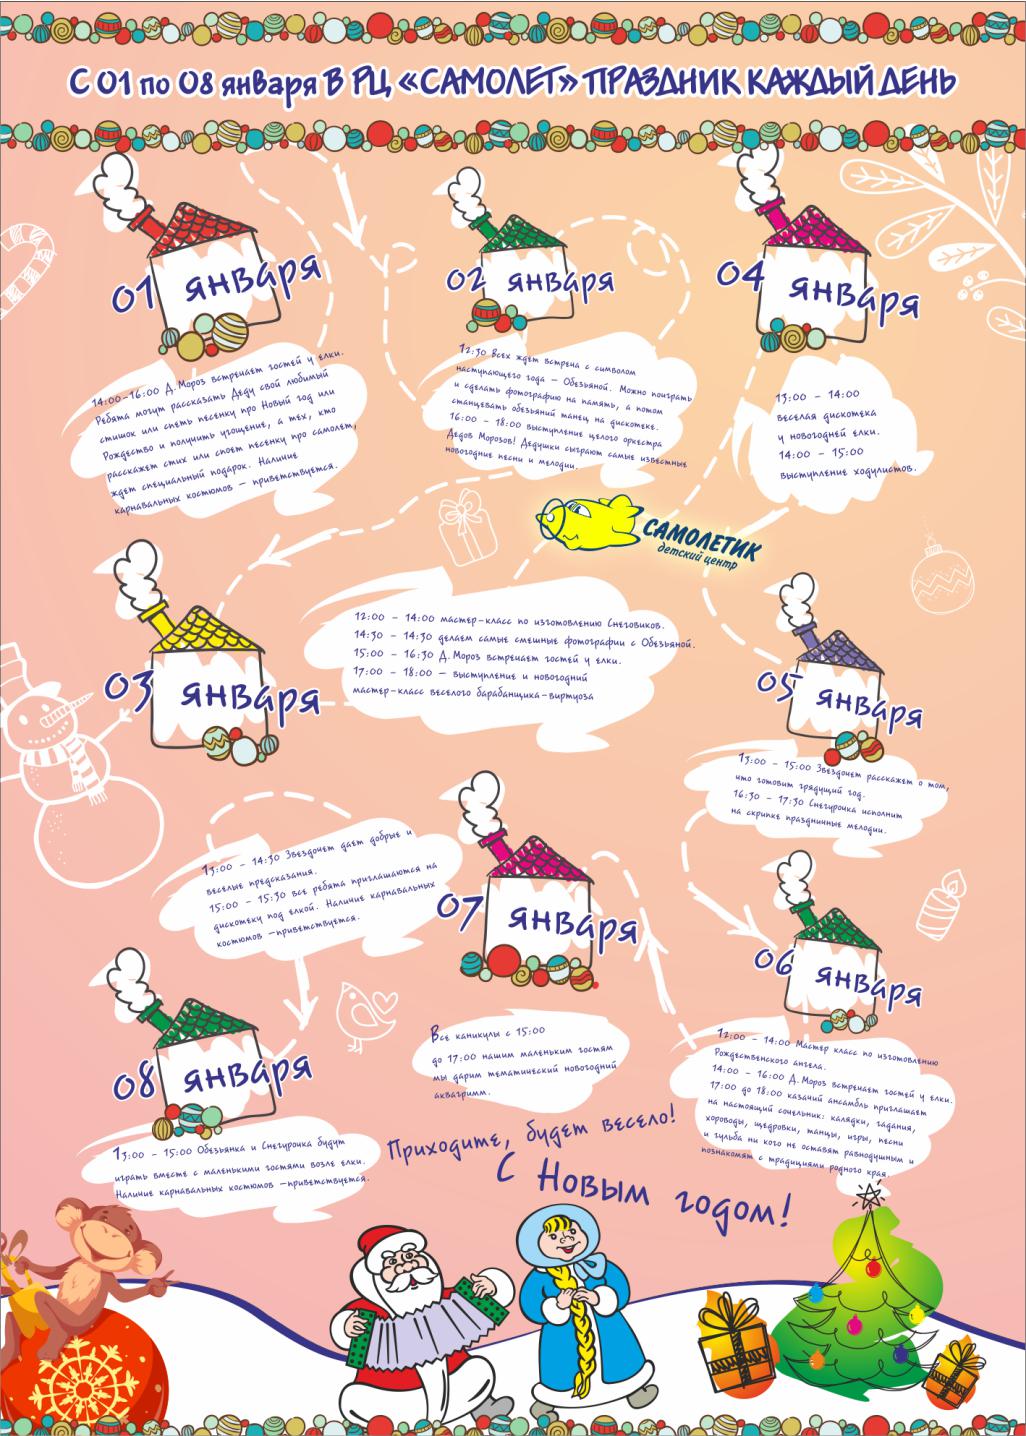 С 01 по 08 января В РЦ «САМОЛЕТ» ПРАЗДНИК КАЖДЫЙ ДЕНЬ
01 января
14:00-16:00 Д.Мороз встречает гостей у елки.
Ребята могут рассказать Деду свой любимый
стишок или спеть песенку про Новый год или
Рождество и получить угощение, а тех, кто
расскажет стих или споет песенку про самолет,
ждет специальный подарок. Наличие
карнавальных костюмов – приветствуется.
02 января
12:30 Всех ждет встреча с символом
наступающего года – Обезьяной. Можно поиграть
и сделать фотографию на память, а потом
станцевать обезьяний танец на дискотеке.
16:00 - 18:00 выступление целого оркестра
Дедов Морозов! Дедушки сыграют самые известные
новогодние песни и мелодии.
04 января
13:00 - 14:00
веселая дискотека
у новогодней елки.
14:00 - 15:00
выступление ходулистов.
САМОЛЕТИК
детский центр
03 января
12:00 - 14:00 мастер-класс по изготовлению Снеговиков.
14:30 - 14:30 делаем самые смешные фотографии с Обезьяной.
15:00 - 16:30 Д.Мороз встречает гостей у елки.
17:00 - 18:00 – выступление и новогодний
мастер-класс веселого барабанщика-виртуоза
05 января
13:00 - 15:00 Звездочет расскажет о том,
что готовит грядущий год.
16:30 - 17:30 Снегурочка исполнит
на скрипке праздничные мелодии.
07 января
13:00 - 14:30 Звездочет дает добрые и
веселые предсказания.
15:00 - 15:30 все ребята приглашаются на
дискотеку под елкой. Наличие карнавальных
костюмов –приветствуется.
06 января
12:00 - 14:00 Мастер класс по изготовлению
Рождественского ангела.
14:00 - 16:00 Д.Мороз встречает гостей у елки.
17:00 до 18:00 казачий ансамбль приглашает
на настоящий сочельник: калядки, гадания,
хороводы, щедровки, танцы, игры, песни
и гульба ни кого не оставят равнодушным и
познакомят с традициями родного края.
08 января
13:00 - 15:00 Обезьянка и Снегурочка будут
играть вместе с маленькими гостями возле елки.
Наличие карнавальных костюмов –приветствуется.
Все каникулы с 15:00
до 17:00 нашим маленьким гостям
мы дарим тематический новогодний
аквагримм.
Приходите, будет весело!
С Новым годом!